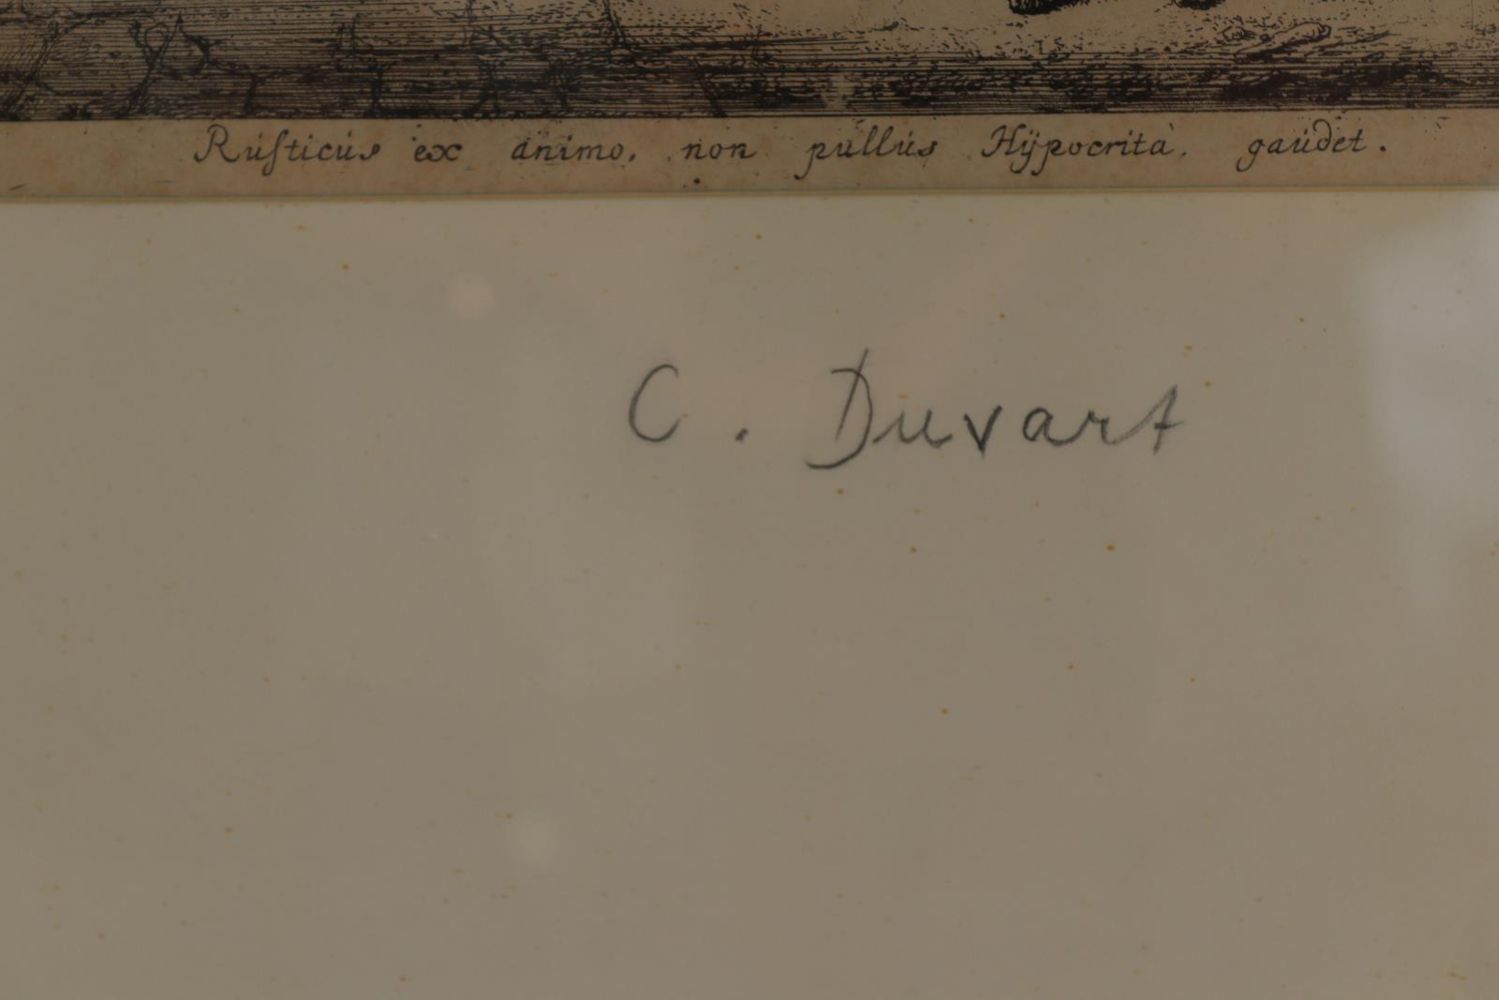 Ruſticus ex animo, non pullus Hÿpocrita, gaudet.
C. Duvart